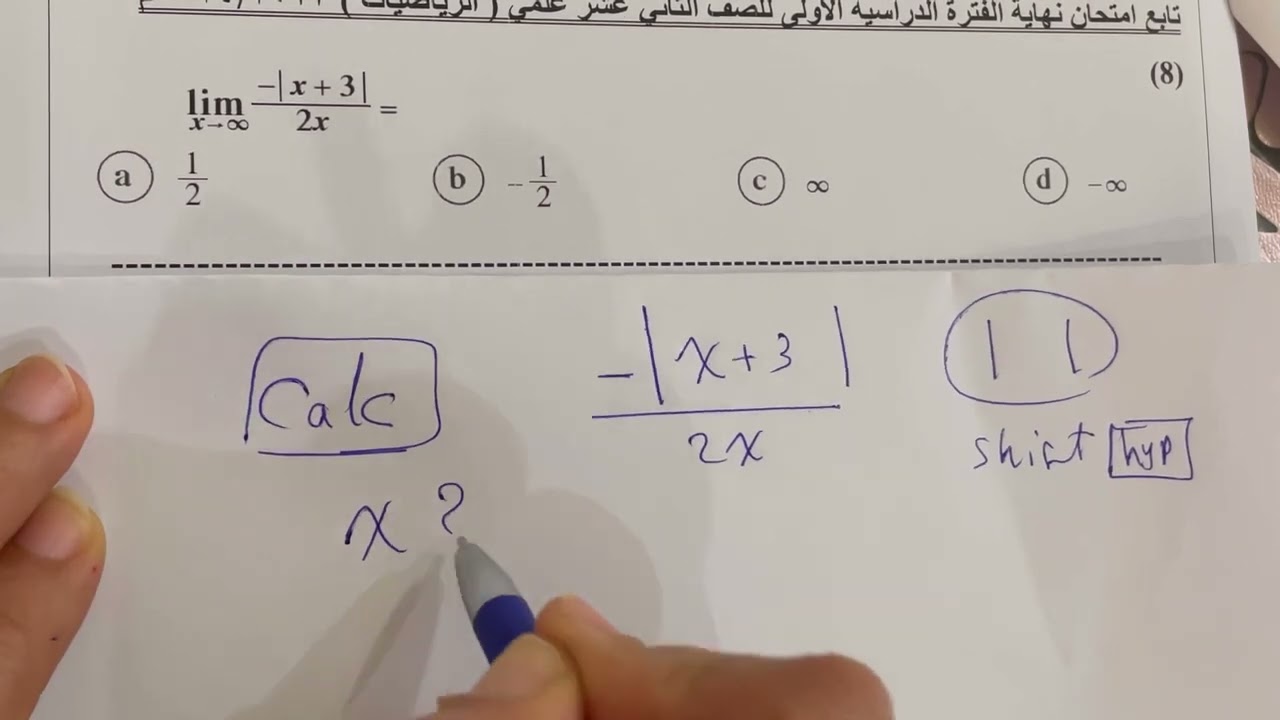 تابع امتحان نهاية الفترة الدراسية الأولى للصف الثاني عشر علمي ( الرياضيات )
(8)
lim x→∞ -|x + 3| / 2x =
a 1/2 b -1/2 c ∞ d -∞
Calc -|x+3| / 2x | |
shift hyp
x ?